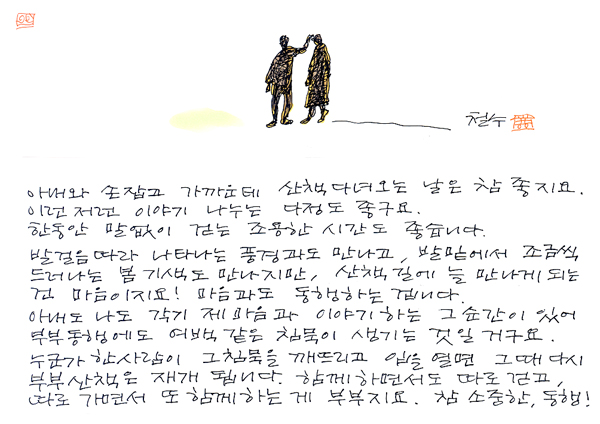 철수
아내와 손잡고 가까운데 산책 다녀오는 날은 참 좋지요.
이런저런 이야기 나누는 다정도 좋구요.
한동안 말없이 걷는 조용한 시간도 좋습니다.
발걸음따라 나타나는 풍경과도 만나고, 발밑에서 조금씩
드러나는 봄기색도 만나지만, 산책길에 늘 만나게 되는
건 마음이지요! 마음과도 동행하는 겁니다.
아내도 나도 각기 제마음과 이야기하는 그순간이 있어
부부동행에도 여백 같은 침묵이 생기는 것일 거구요.
누군가 한사람이 그침묵을 깨뜨리고 입을 열면 그때 다시
부부산책은 재개 됩니다. 함께하면서도 따로 걷고,
따로 가면서 또 함께하는 게 부부지요. 참 소중한, 동행!